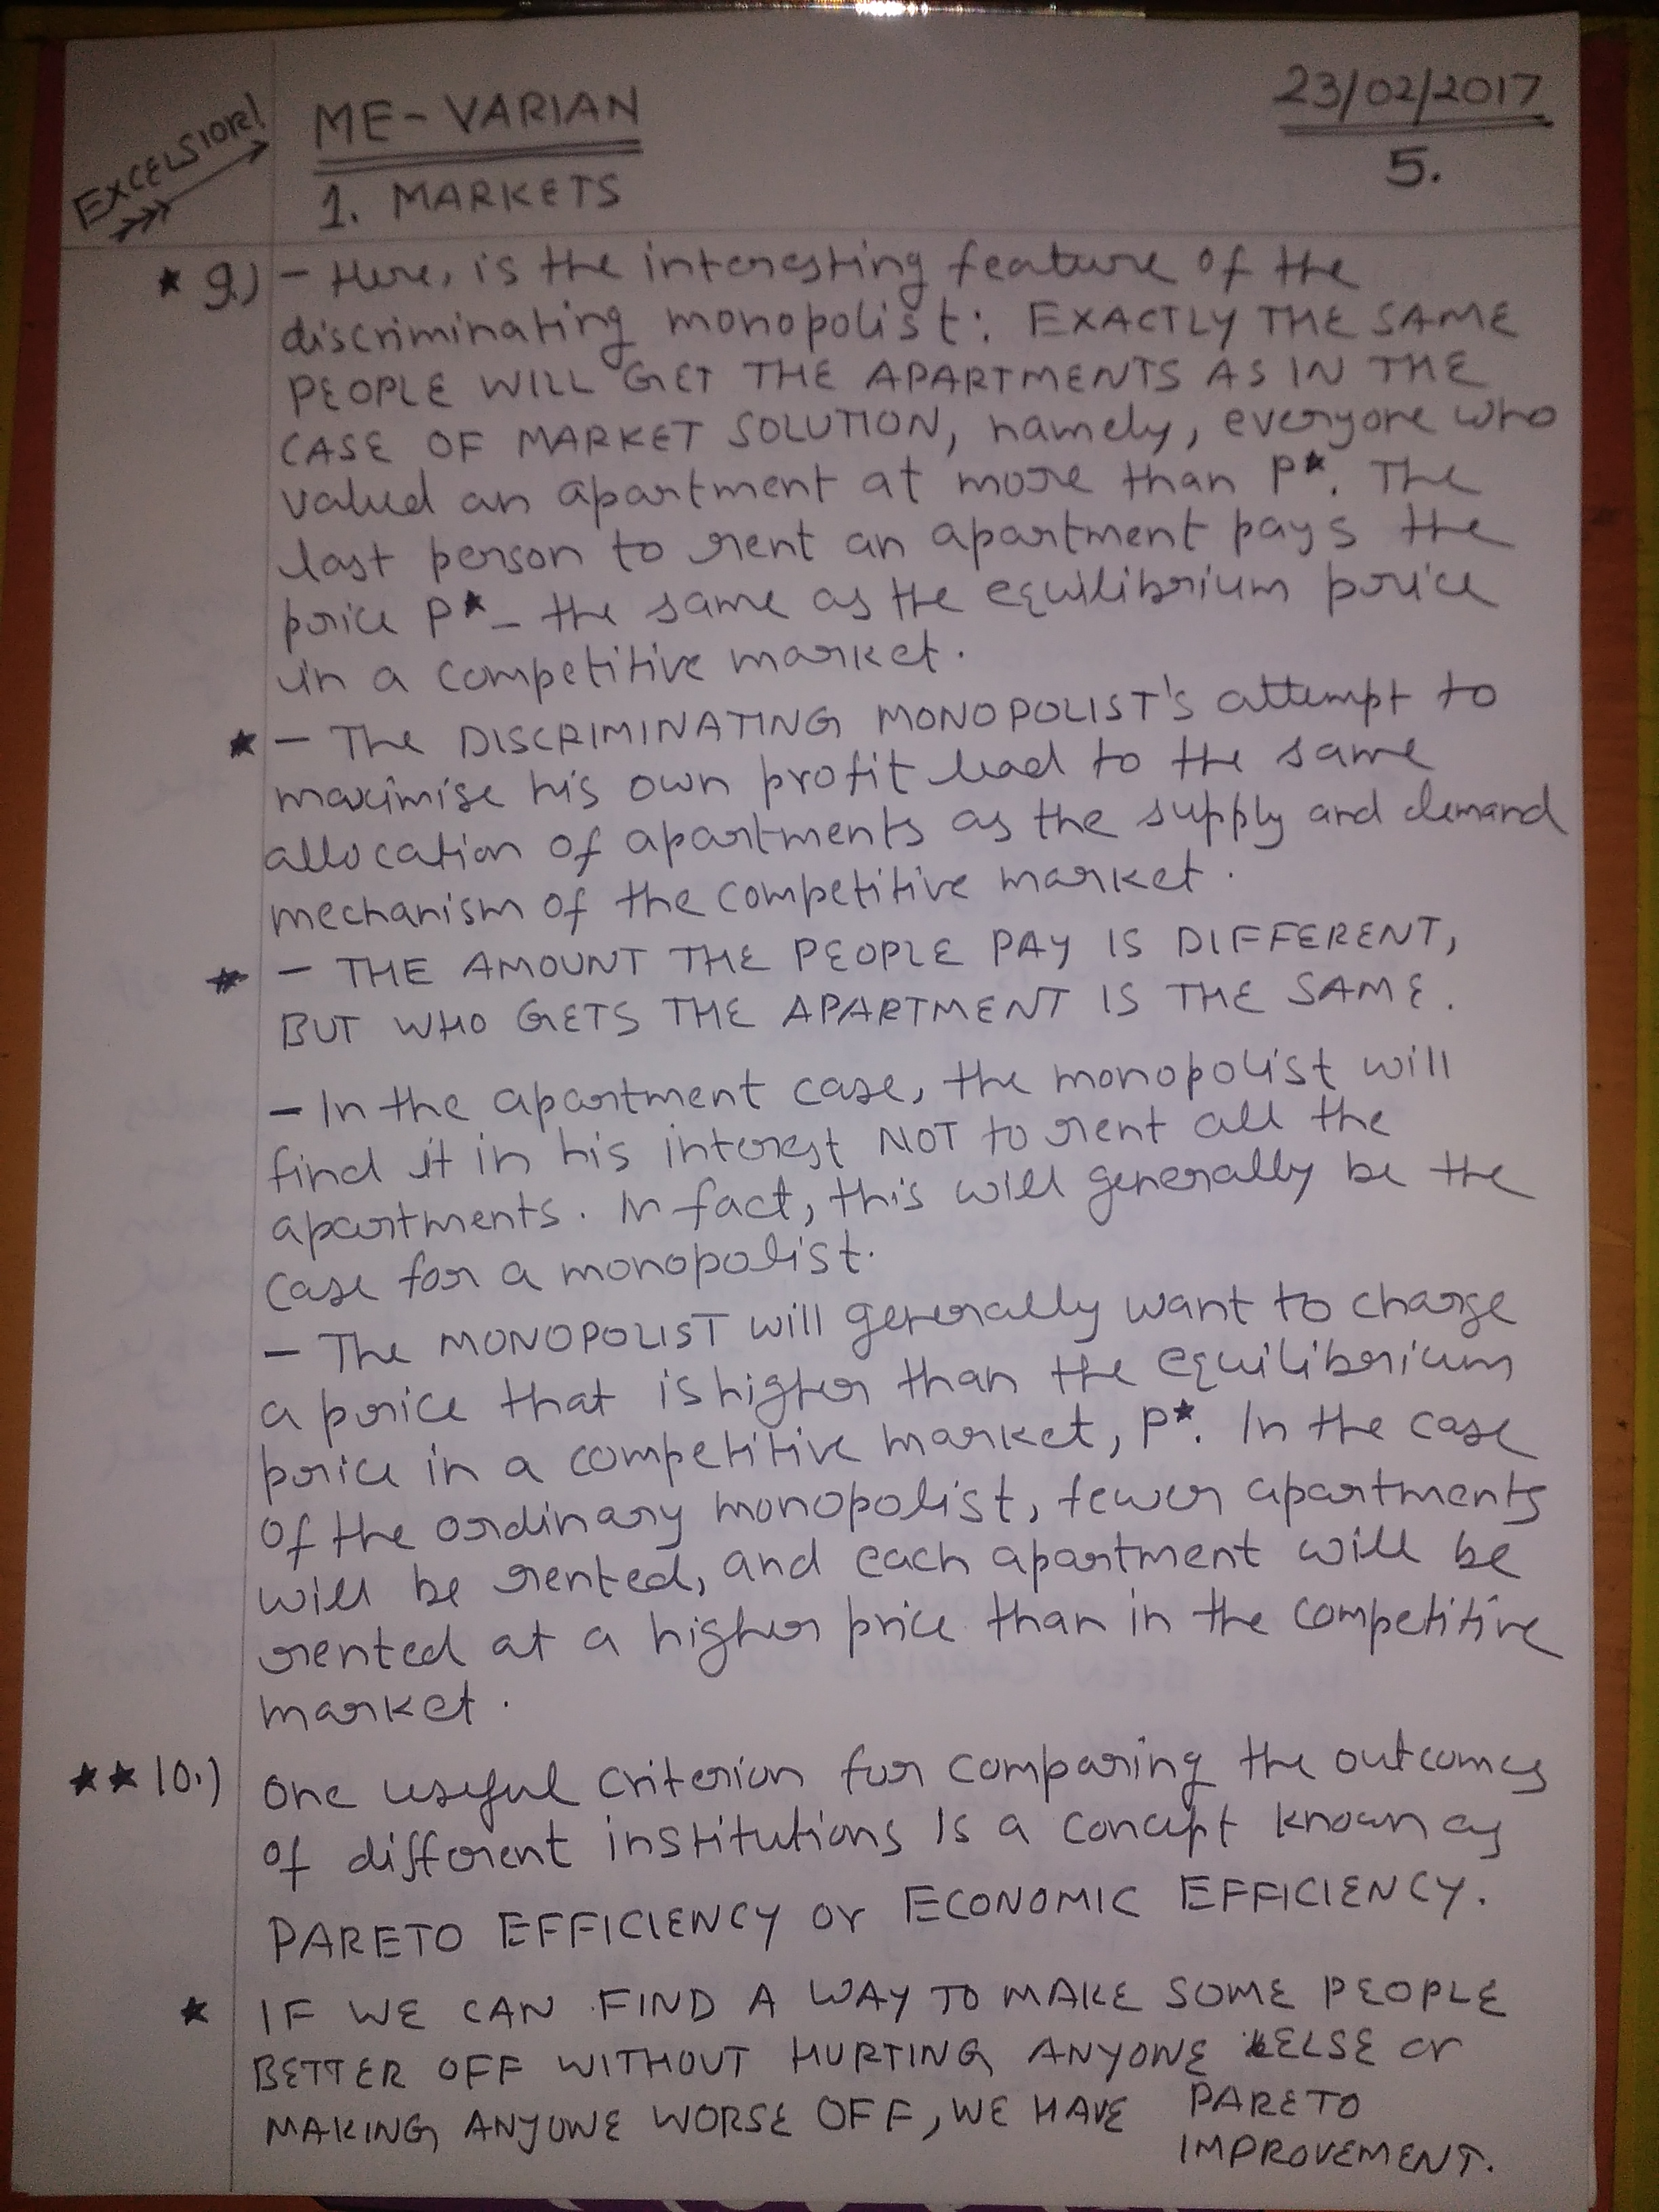 EXCELSIOR!
ME - VARIAN
23/02/2017
1. MARKETS
5.
★ 9.) - Here, is the interesting feature of the
discriminating monopolist: EXACTLY THE SAME
PEOPLE WILL GET THE APARTMENTS AS IN THE
CASE OF MARKET SOLUTION, namely, everyone who
valued an apartment at more than P*. The
last person to rent an apartment pays the
price P* - the same as the equilibrium price
in a competitive market.
★ - The DISCRIMINATING MONOPOLIST's attempt to
maximise his own profit lead to the same
allocation of apartments as the supply and demand
mechanism of the competitive market.
★ - THE AMOUNT THE PEOPLE PAY IS DIFFERENT,
BUT WHO GETS THE APARTMENT IS THE SAME.
- In the apartment case, the monopolist will
find it in his interest NOT to rent all the
apartments. In fact, this will generally be the
case for a monopolist.
- The MONOPOLIST will generally want to charge
a price that is higher than the equilibrium
price in a competitive market, P*. In the case
of the ordinary monopolist, fewer apartments
will be rented, and each apartment will be
rented at a higher price than in the competitive
market.
★★ 10.) One useful criterion for comparing the outcomes
of different institutions is a concept known as
PARETO EFFICIENCY or ECONOMIC EFFICIENCY.
★ IF WE CAN FIND A WAY TO MAKE SOME PEOPLE
BETTER OFF WITHOUT HURTING ANYONE ELSE or
MAKING ANYONE WORSE OFF, WE HAVE PARETO
IMPROVEMENT.